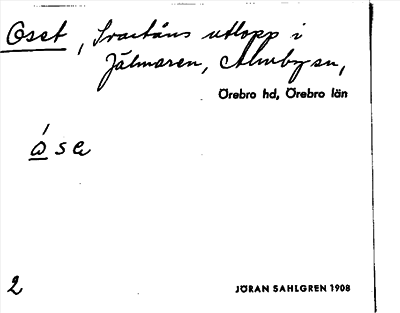 Osset, Svartåns utlopp i
Jälmaren, Almby sn,
Örebro hd, Örebro län
2
JÖRAN SAHLGREN 1908